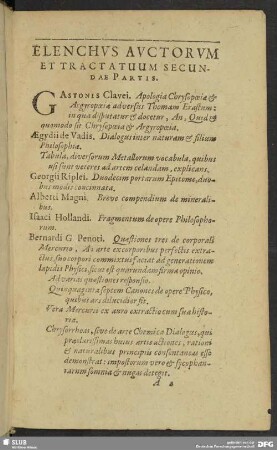 ELENCHVS AVCTORVM
ET TRACTATUUM SECUN-
DAE PARTIS.
GASTONIS Clavei. Apologia Chrysopœiæ &
Argyropœiæ adversus Thomam Erastum:
in qua disputatur & docetur, An, Quid &
quomodo sit Chrysopœia & Argyropœia.
Ægydii de Vadis. Dialogus inter naturam & filium
Philosophiæ.
Tabula, diversorum Metallorum vocabula, quibus
usi sunt veteres ad artem celandam, explicans.
Georgii Riplei. Duodecim portarum Epitome, duo-
bus modis concinnata.
Alberti Magni. Breve compendium de minerali-
bus.
Isaaci Hollandi. Fragmentum de opere Philosopho-
rum.
Bernardi G Penoti. Quæstiones tres de corporali
Mercurio, An arte excorporibus perfectis extra-
ctus, suo corpori commixtus faciat ad generationem
lapidis Physici, sicut est quorundam firma opinio.
Ad varias quæstiones responsio.
Quinquaginta septem Canones de opere Physico,
quibus ars dilucidior fit.
Vera Mercurii ex auro extractio cum sua histo-
ria.
Chrysorrhoas, sive de arte Chemica Dialogus, qui
præclarissimas huius artis actiones, rationi
& naturalibus principiis consentaneas esse
demonstrat: impostorum vero & pseudo
rum somnia & nugas detegit.
A 2
SLUB
DFG